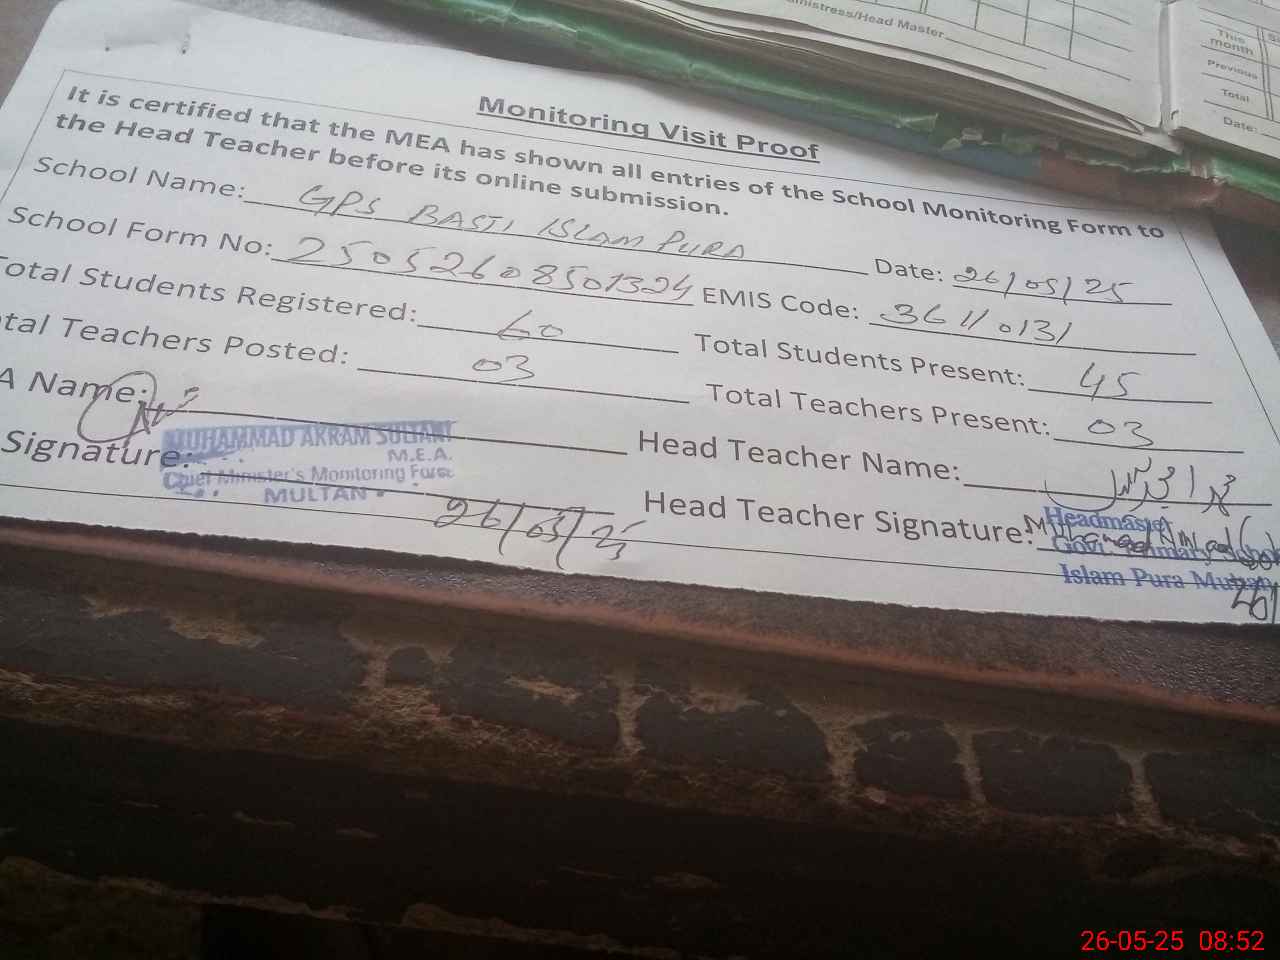 mistress/Head Master
This month
Previous
Total
Date:
Monitoring Visit Proof
It is certified that the MEA has shown all entries of the School Monitoring Form to
the Head Teacher before its online submission.
School Name: GPS BASTI ISLAM PURA Date: 26/05/25
School Form No: 25052608501324 EMIS Code: 36110131
Total Students Registered: 60 Total Students Present: 45
tal Teachers Posted: 03 Total Teachers Present: 03
A Name: Head Teacher Name:
Signature: Head Teacher Signature:
MUHAMMAD AKRAM SULTANI
M.E.A.
Chief Minister's Monitoring Force
MULTAN
26/05/25
Headmaster
Govt. Primary School
Islam Pura Multan
26-05-25 08:52